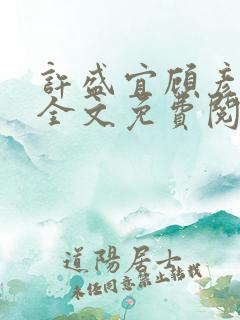 許盛宜顧彥
全文免費閱
道陽居士
未經同意禁止轉載